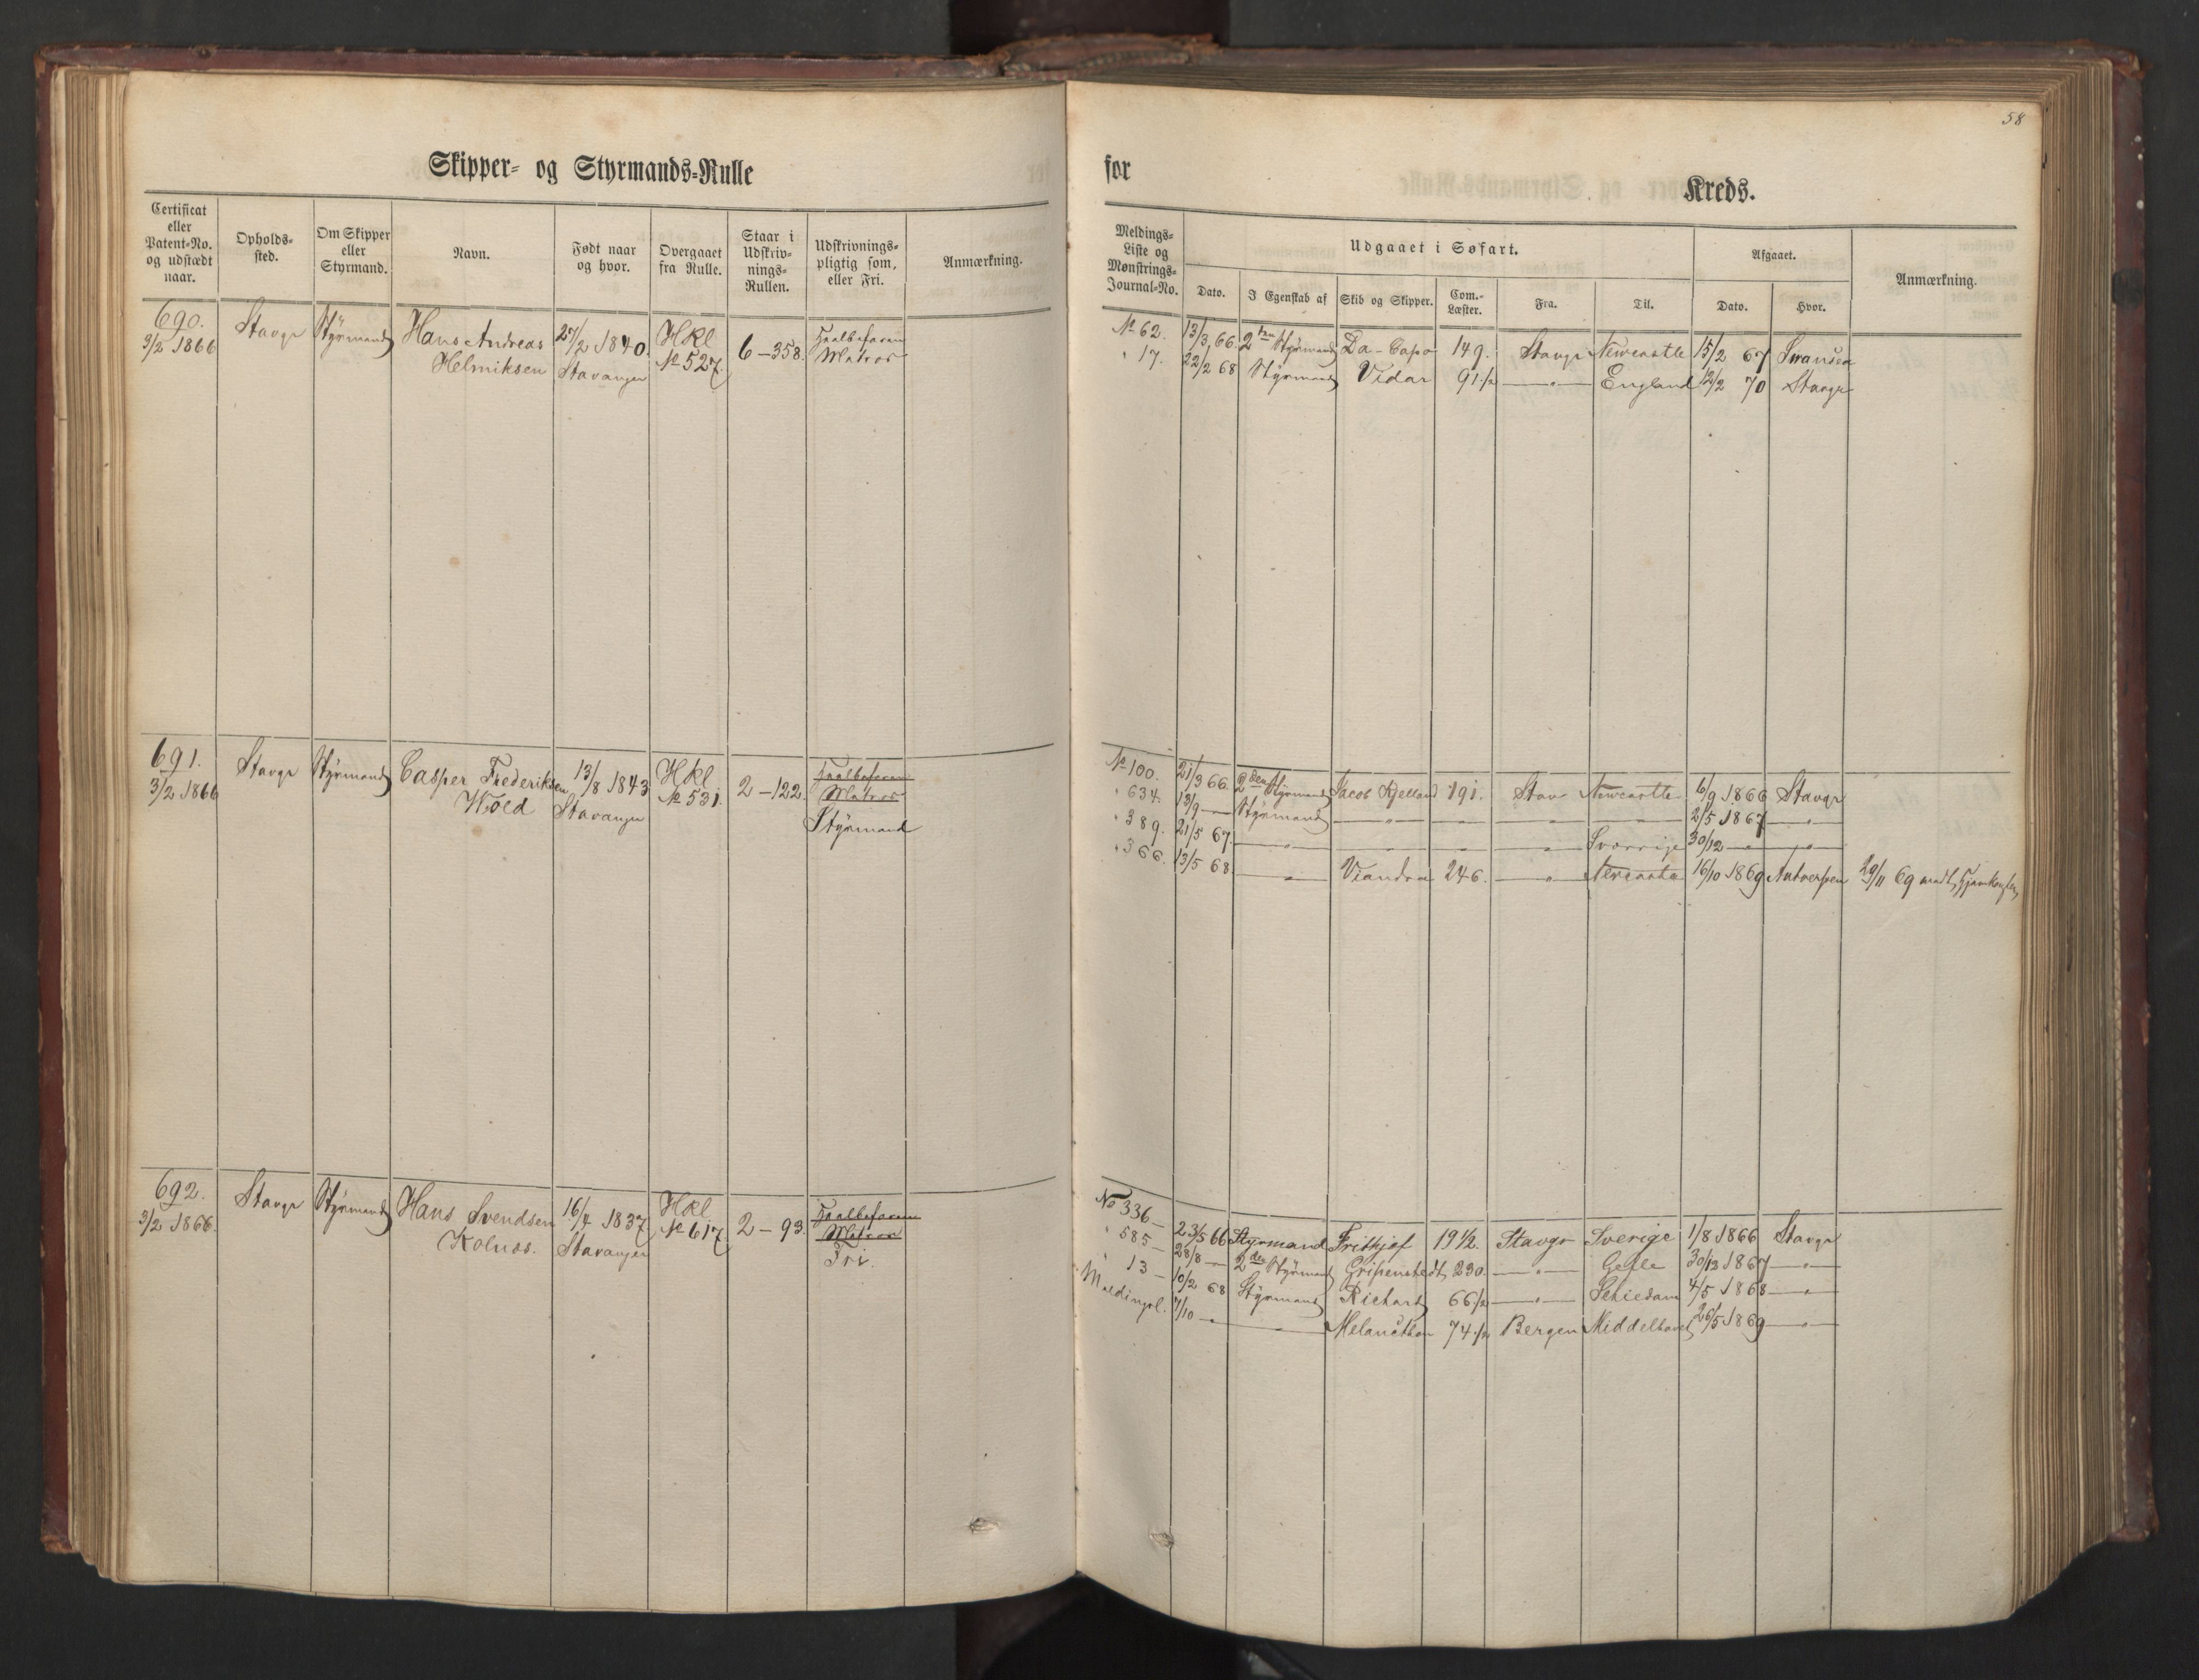 58
Skipper- og Styrmands-Rulle
for
Kreds.
Certificat eller Patent-No. og udstædt naar.
Opholds-sted.
Om Skipper eller Styrmand.
Navn.
Født naar og hvor.
Overgaaet fra Rulle.
Staar i Udskriv-nings-Rullen.
Udskrivnings-pligtig som, eller Fri.
Anmærkning.
Meldings-Liste og Mønstrings-Journal-No.
Udgaaet i Søfart.
Afgaaet.
Anmærkning.
Dato.
I Egenskab af
Skib og Skipper.
Com.-Læster.
Fra.
Til.
Dato.
Hvor.
690.
3/2 1866
Stavgr
Styrmand
Hans Andreas
Helmiksen
27/2 1840.
Stavanger
Hkl
No 527.
6 - 358.
Matros
No 62. 13/3 66. 2den Styrmand Da-Capo 149. Stavgr Newcastle 15/2 67 Swansea
" 17. 22/2 68 Styrmand Vidar 91 1/2 — " — England 12/2 70 Stavgr
691.
3/2 1866
Stavgr
Styrmand
Casper Frederiksen
Wold
13/8 1843
Stavanger
Hkl
No 531.
2 - 122.
Matros
Styrmand
No 100. 21/3 66. 2den Styrmand Jacob Kielland 191. Stav Newcastle 6/9 1866 Stavgr
" 634. 18/9 — Styrmand — " — — — " — — 2/5 1867 — " —
" 389. 21/5 67. — " — — " — — — " — Sverrige 30/12 — — " —
" 366. 13/5 68. — " — Viandra 246. — " — Newcastle 16/10 1869 Antwerpen 29/11 69
692.
3/2 1866.
Stavgr
Styrmand
Hans Svendsen
Kolnes.
16/4 1837
Stavanger
Hkl
No 617
2 - 93.
Matros
Fri.
No 336 — 23/5 66 Styrmand Frithjof 19 1/2. Stavgr Sverige 1/8 1866 Stavgr
" 585 — 28/8 — 2den Styrmand Gripenstedt 230. — " — Gefle 30/12 1867 — " —
" 13 — 10/2 68 Styrmand Richard 66 1/2 — " — Schiedam 4/5 1868 — " —
Meldingsl. 7/10 — " — — Melancthon 74 1/2 Bergen Middelhavet 26/5 1869 — " —